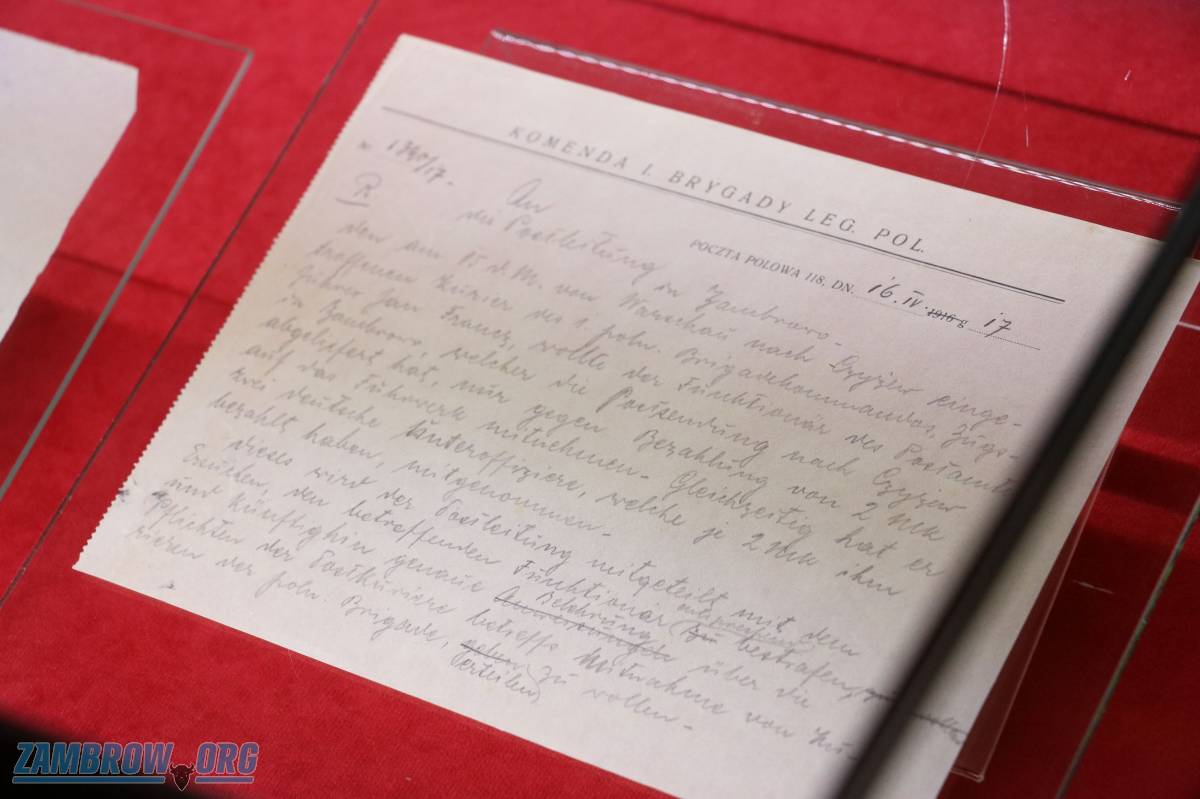 KOMENDA I. BRYGADY LEG. POL.
№ 1740/17.
POCZTA POLOWA 118, DN. 16. IV. 1916 g 17
R
An
die Postleitung in Zambrowo.
Dem am 15 d. M. von Warschau nach Czyżew einge-
troffenen Kurier des 1. poln. Brigadekommandos, Zugs-
führer Jan Francz, wollte der Funktionär des Postamts
in Zambrowo, welcher die Postsendung nach Czyżew
abgeliefert hat, nur gegen Bezahlung von 2 Mk
auf das Fuhrwerk mitnehmen. Gleichzeitig hat er
zwei deutsche Unteroffiziere, welche je 2 Mk ihm
bezahlt haben, mitgenommen.
Dieses wird der Postleitung mitgeteilt mit dem
Ersuchen, den betreffenden Funktionär entsprechend zu bestrafen,
und künftighin genaue Belehrung über die
Pflichten der Postkuriere betreffs Mitnahme von Ku-
rieren der poln. Brigade, geben zu wollen.
erteilen
ZAMBROW.ORG